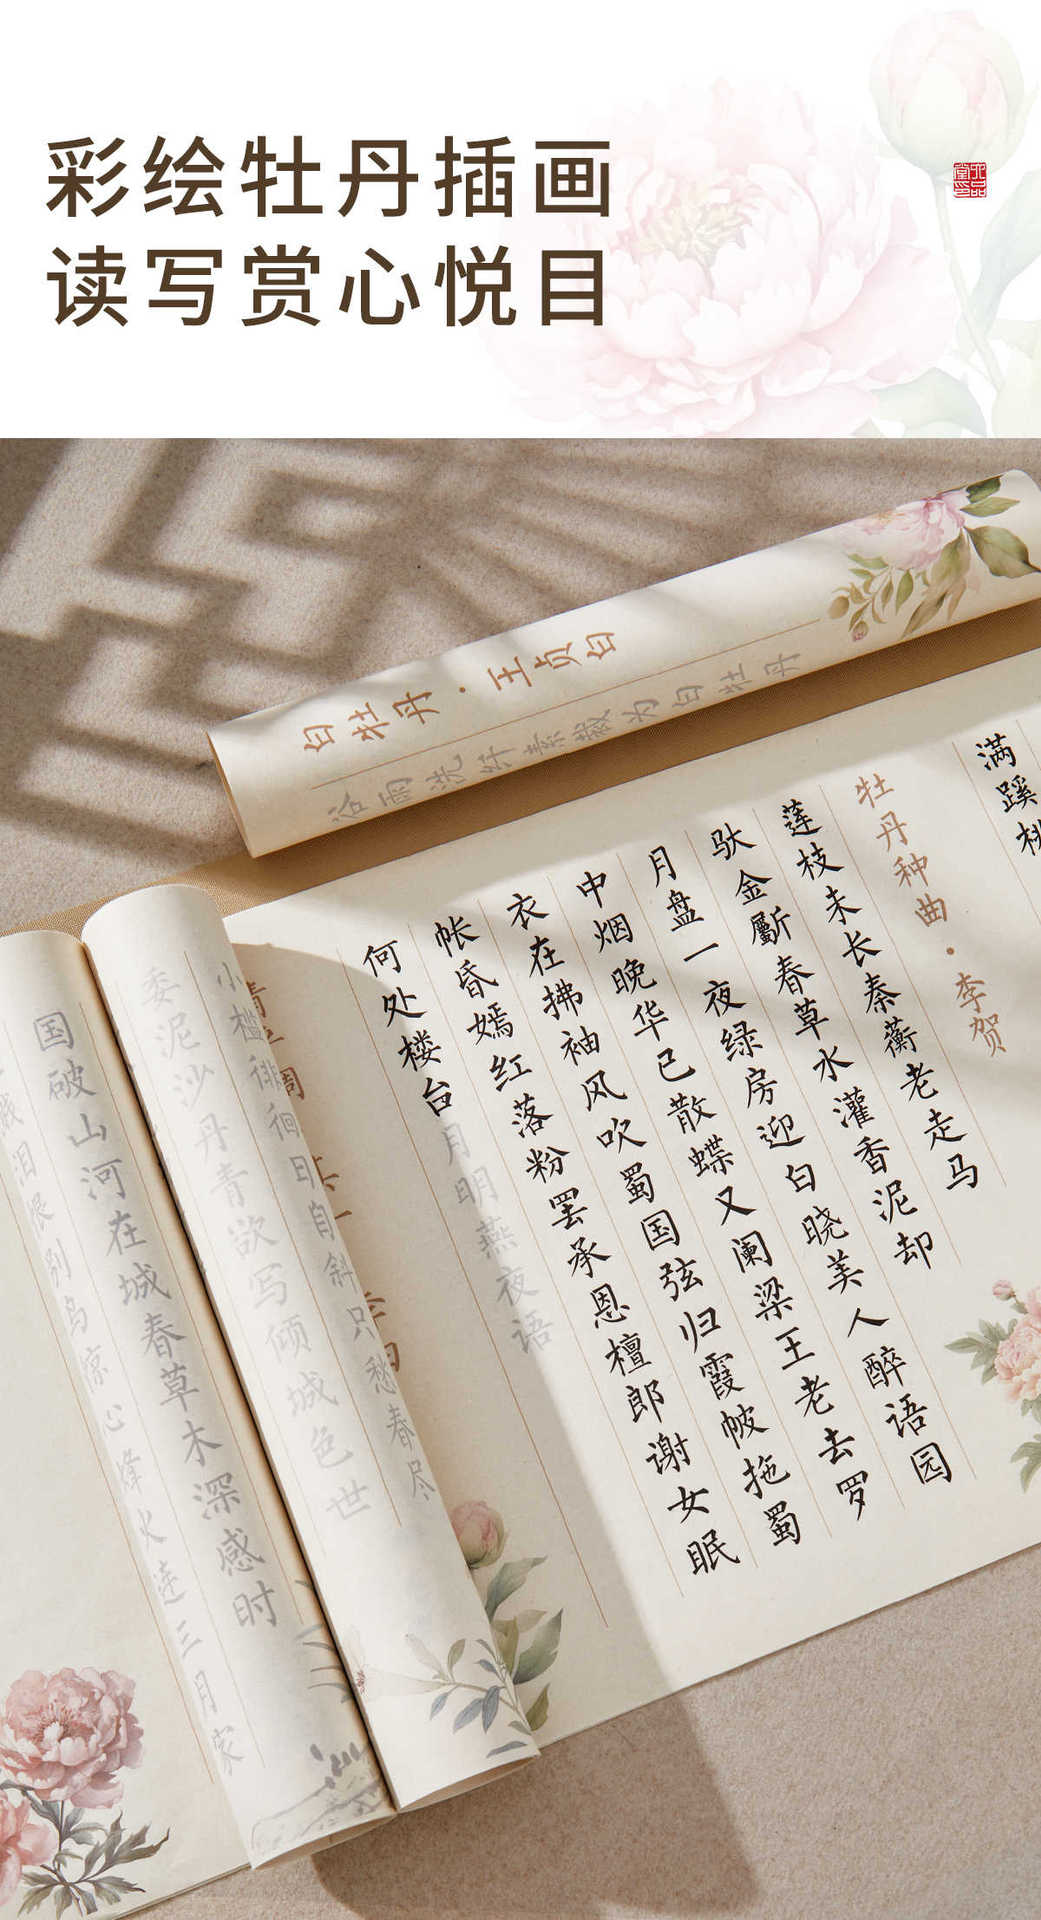 彩绘牡丹插画
读写赏心悦目
六品堂印
白牡丹·王贞白
谷雨洗纤素裁为白牡丹
满蹊桃
牡丹种曲·李贺
莲枝未长秦蘅老走马
驮金斸春草水灌香泥却
月盘一夜绿房迎白晓美人醉语园
中烟晚华已散蝶又阑梁王老去罗
衣在拂袖风吹蜀国弦归霞帔拖蜀
帐昏嫣红落粉罢承恩檀郎谢女眠
何处楼台月明燕夜语
小槛徘徊日自斜只愁春尽
委泥沙丹青欲写倾城色世
国破山河在城春草木深感时
溅泪恨别鸟惊心烽火连三月家